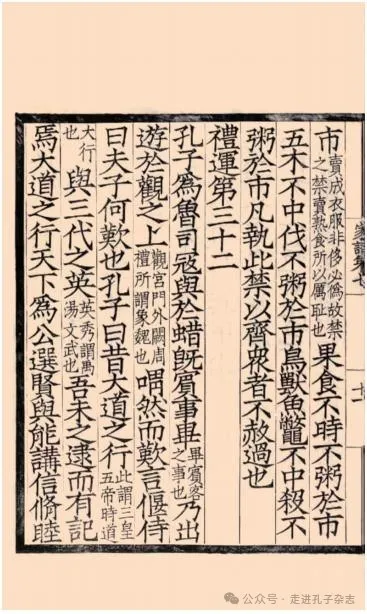 市賣成衣服非侈必偽故禁之禁賣熟食所以厲恥也果食不時不粥於市
五木不中伐不粥於市鳥獸魚鼈不中殺不
粥於市凡執此禁以齊衆者不赦過也
禮運第三十二
孔子爲魯司寇與於蜡旣賓事畢畢賓客之事也乃出
遊於觀之上觀宮門外闕周禮所謂象魏也喟然而歎言偃侍
曰夫子何歎也孔子曰昔大道之行此謂三皇五帝時道
大行也與三代之英英秀謂禹湯文武也吾未之逮而有記
焉大道之行天下爲公選賢與能講信脩睦
公众号 · 走进孔子杂志